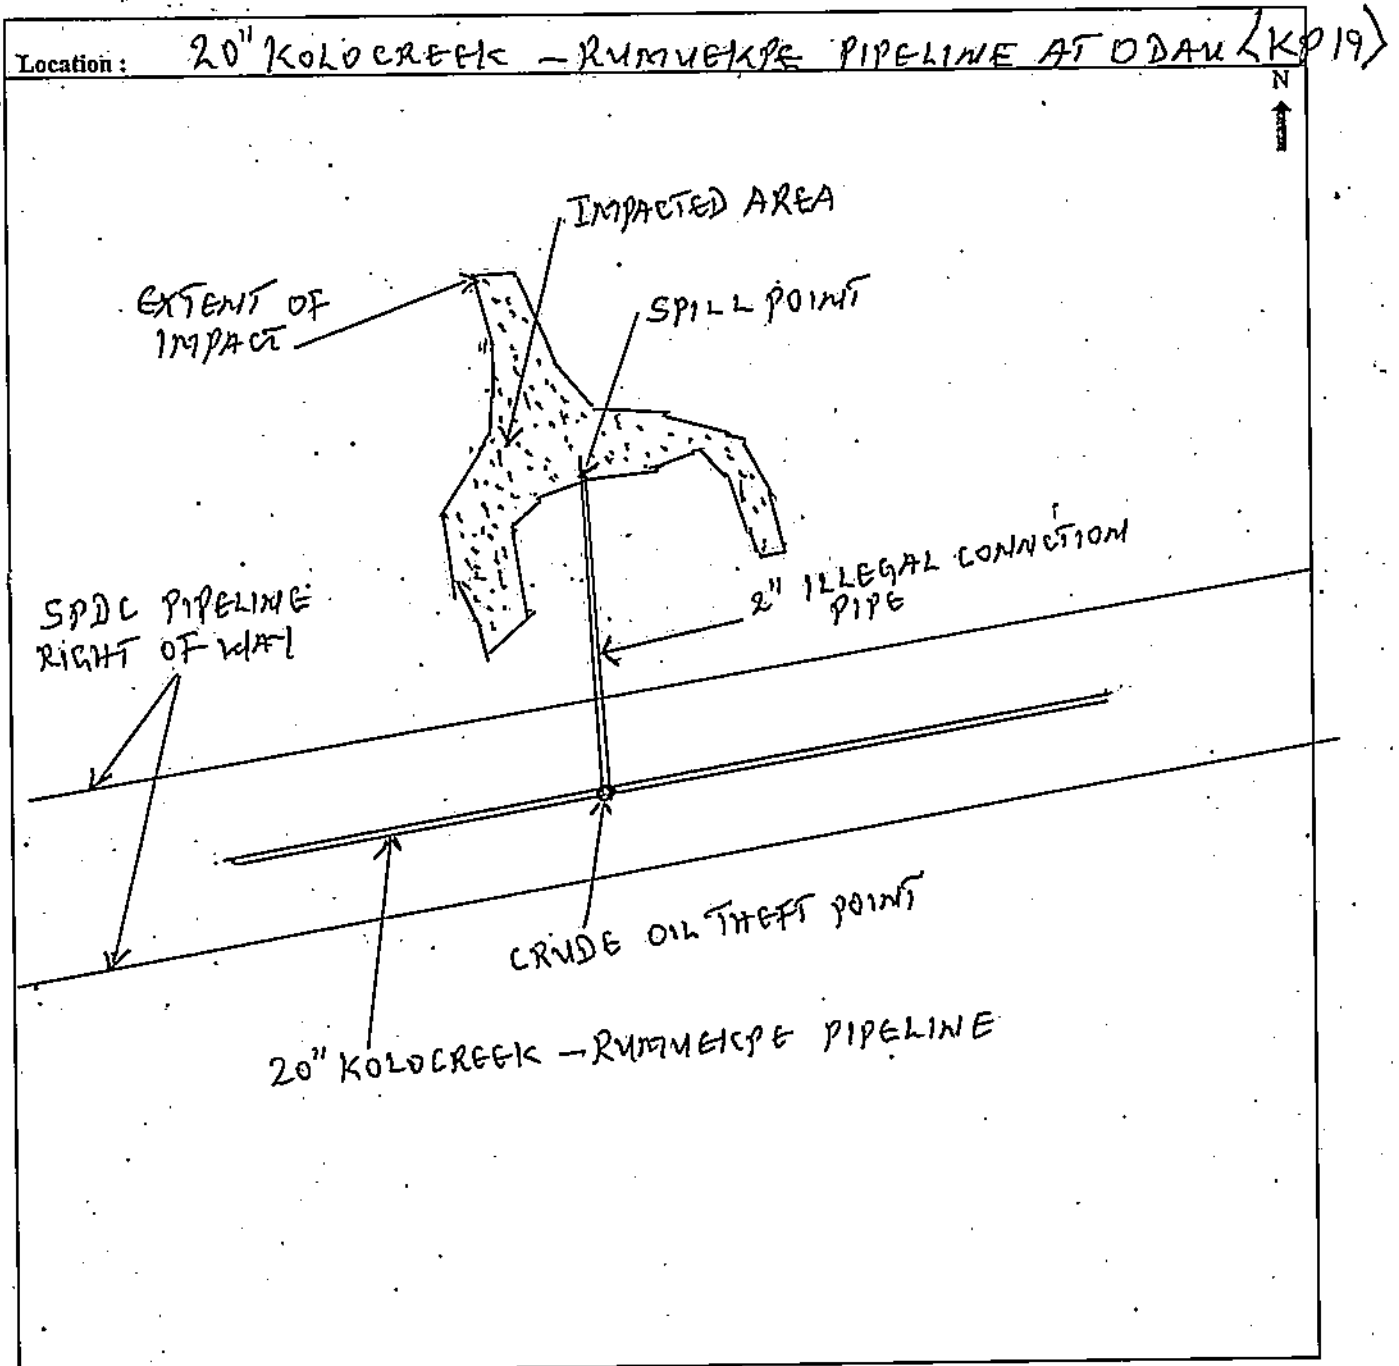 Location : 20" KOLOCREEK - RUMUEKPE PIPELINE AT ODAU <KP19>
N
IMPACTED AREA
EXTENT OF
IMPACT
SPILL POINT
2" ILLEGAL CONNCTION
PIPE
SPDC PIPELINE
RIGHT OF WAY
CRUDE OIL THEFT POINT
20" KOLOCREEK - RUMUEKPE PIPELINE